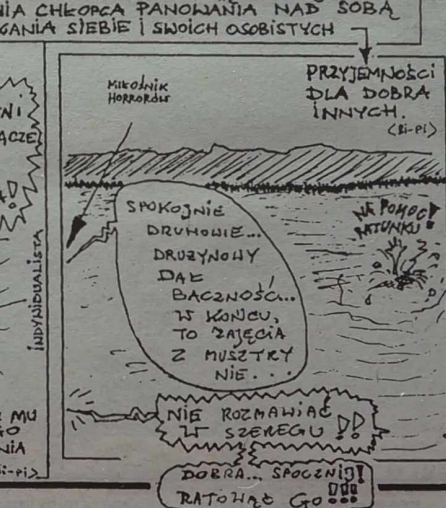 NIA CHŁOPCA PANOWANIA NAD SOBĄ
GANIA SIEBIE I SWOICH OSOBISTYCH
PRZYJEMNOŚCI
DLA DOBRA
INNYCH.
<Bi-Pi>
MIŁOŚNIK
HORRORÓW
INDYWIDUALISTA
SPOKOJNIE
DRUHOWIE...
DRUŻYNOWY
DAŁ
BACZNOŚĆ!...
W KOŃCU,
TO ZAJĘCIA
Z MUSZTRY
NIE...
NA POMOC!
RATUNKU!
NIE ROZMAWIAĆ
W SZEREGU!!
MU
GO
NIA
Bi-Pi>
DOBRA... SPOCZNIJ!
RATOWAĆ GO!!!